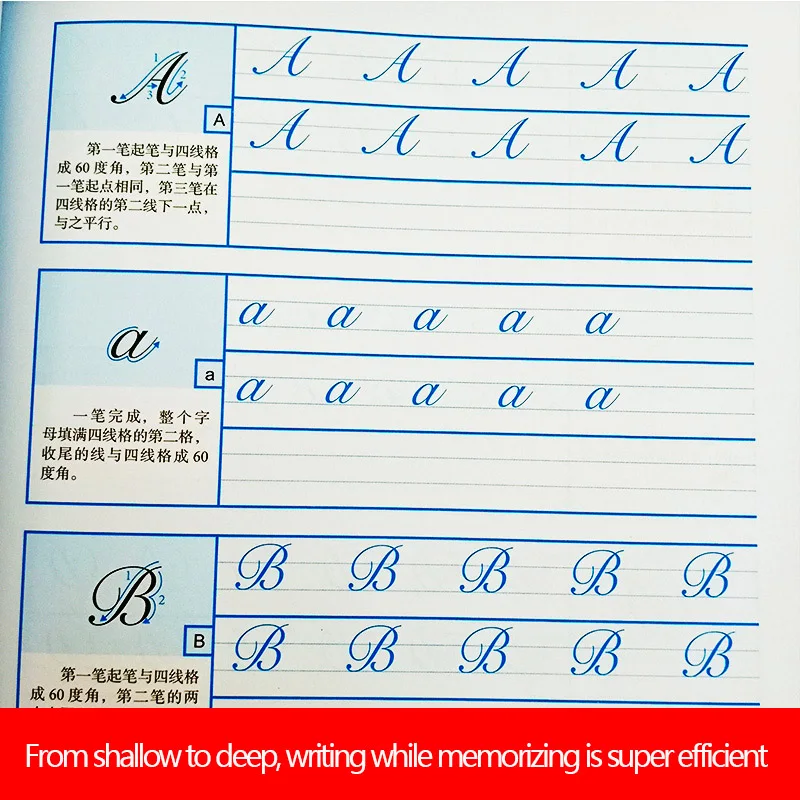 1 2 3
A A A A A A
A
A A A A A
第一笔起笔与四线格
成60度角，第二笔与第
一笔起点相同，第三笔在
四线格的第二线下一点，
与之平行。
a a a a a a
a
a a a a a
一笔完成，整个字
母填满四线格的第二格，
收尾的线与四线格成60
度角。
1 1 2
B B B B B B
B
B B B B B
第一笔起笔与四线格
成60度角，第二笔的两
From shallow to deep, writing while memorizing is super efficient